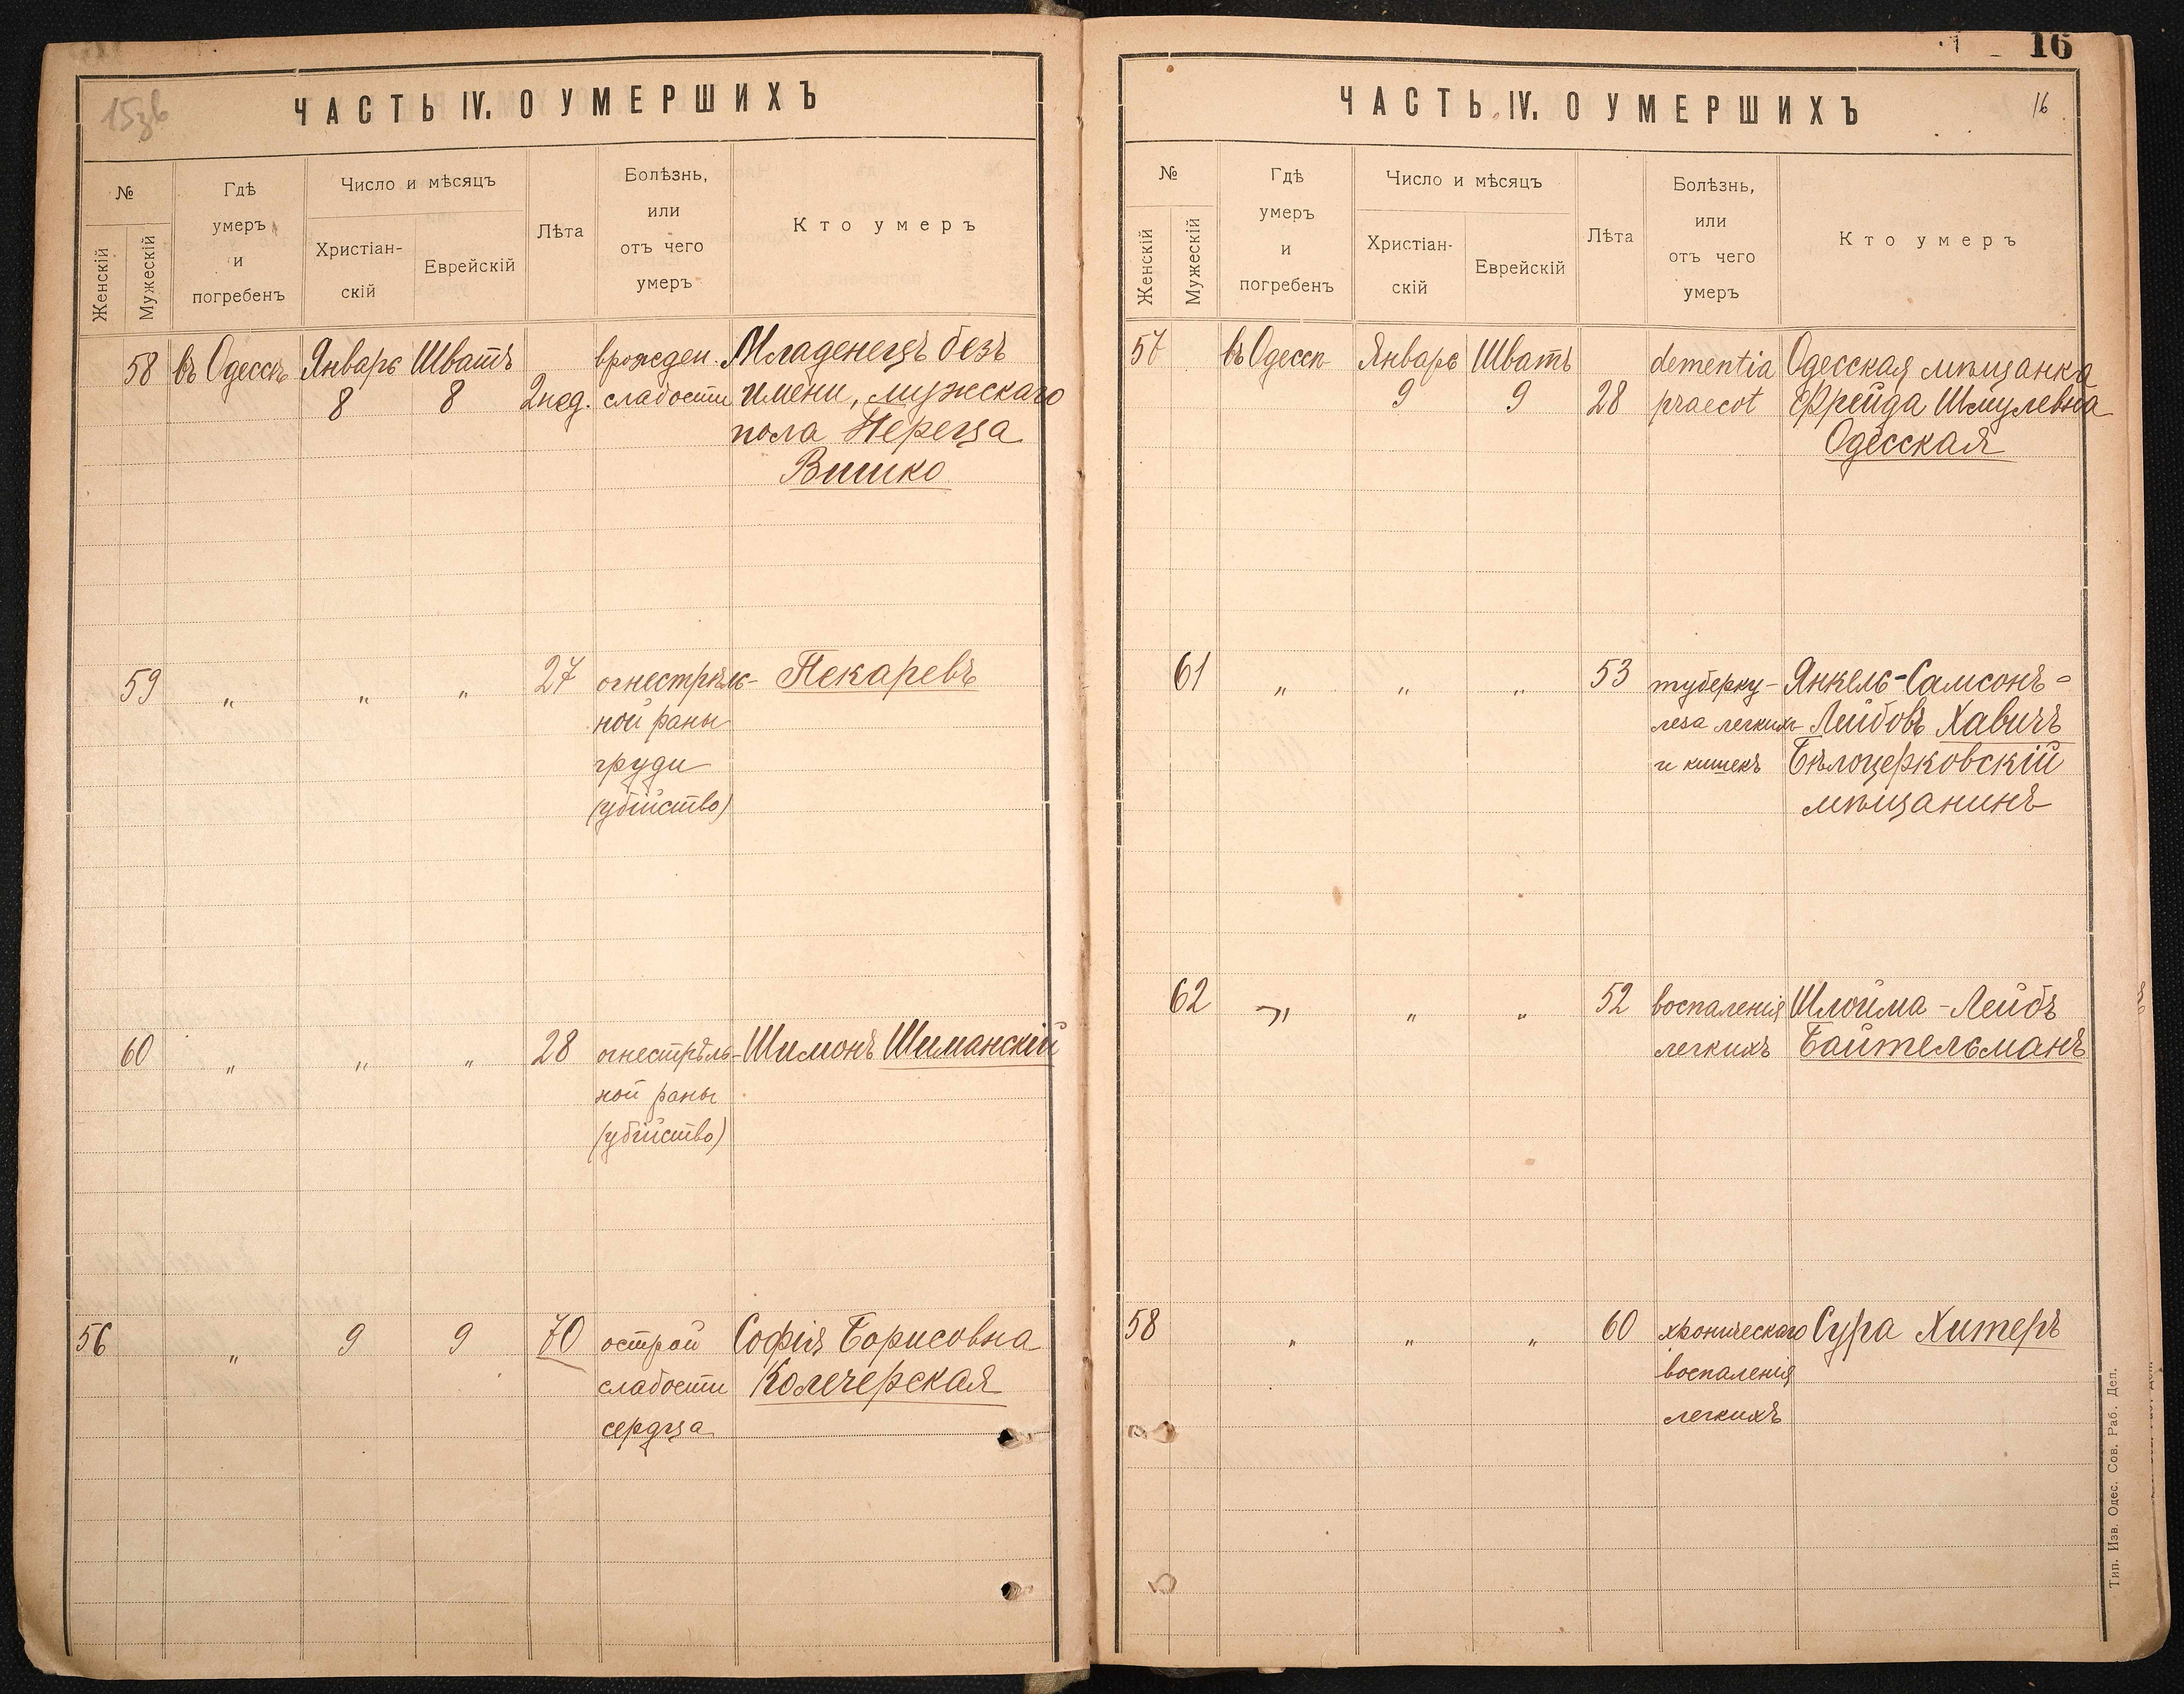 ЧАСТЬ IV. О УМЕРШИХЪ
№
Женскій
Мужескій
Гдѣ
умеръ
и
погребенъ
Число и мѣсяцъ
Христіан-
скій
Еврейскій
Лѣта
Болѣзнь,
или
отъ чего
умеръ
Кто умеръ
58 въ Одессѣ Январь Шватъ врожден. Младенецъ безъ
8 8 2 нед. слабости имени, мужескаго
пола Переца
Вишко
59 " " " 27 огнестрѣль- Пекаревъ
ной раны
груди
(убійство)
60 " " " 28 огнестрѣль- Шимонъ Шиманскій
ной раны
(убійство)
56 " 9 9 70 острой Софія Борисовна
слабости Колечерская
сердца
16
ЧАСТЬ IV. О УМЕРШИХЪ
16
№
Женскій
Мужескій
Гдѣ
умеръ
и
погребенъ
Число и мѣсяцъ
Христіан-
скій
Еврейскій
Лѣта
Болѣзнь,
или
отъ чего
умеръ
Кто умеръ
57 въ Одессѣ Январь Шватъ dementia Одесская мѣщанка
9 9 28 praecot Фрейда Шмулевна
Одесская
61 " " " 53 туберку- Янкель-Самсонъ-
леза легкихъ Лейбовъ Хавичъ
и кишекъ Бѣлоцерковскій
мѣщанинъ
62 " " " 52 воспаленія Шлойма-Лейбъ
легкихъ Байтельманъ
58 " " " 60 хроническаго Сура Хитеръ
воспаленія
легкихъ
Тип. Изв. Одес. Сов. Раб. Деп.